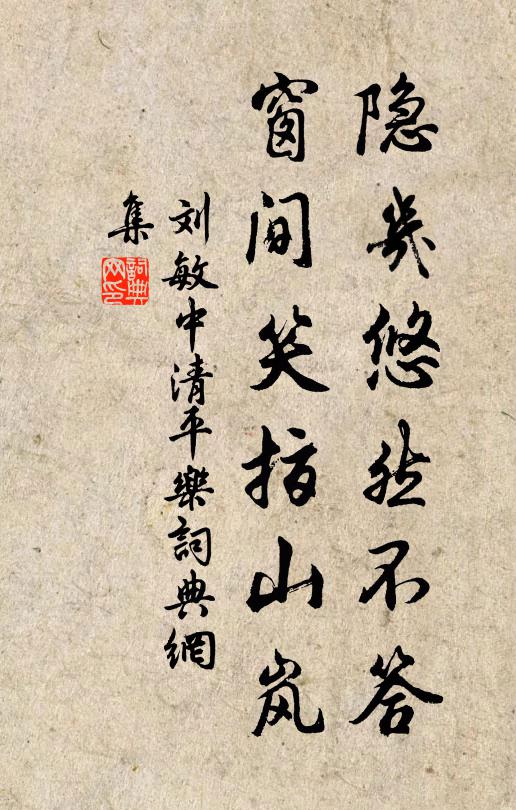 隐幾悠然不答
窗间笑指山岚
刘敏中清平樂詞典網
集
詞典網印